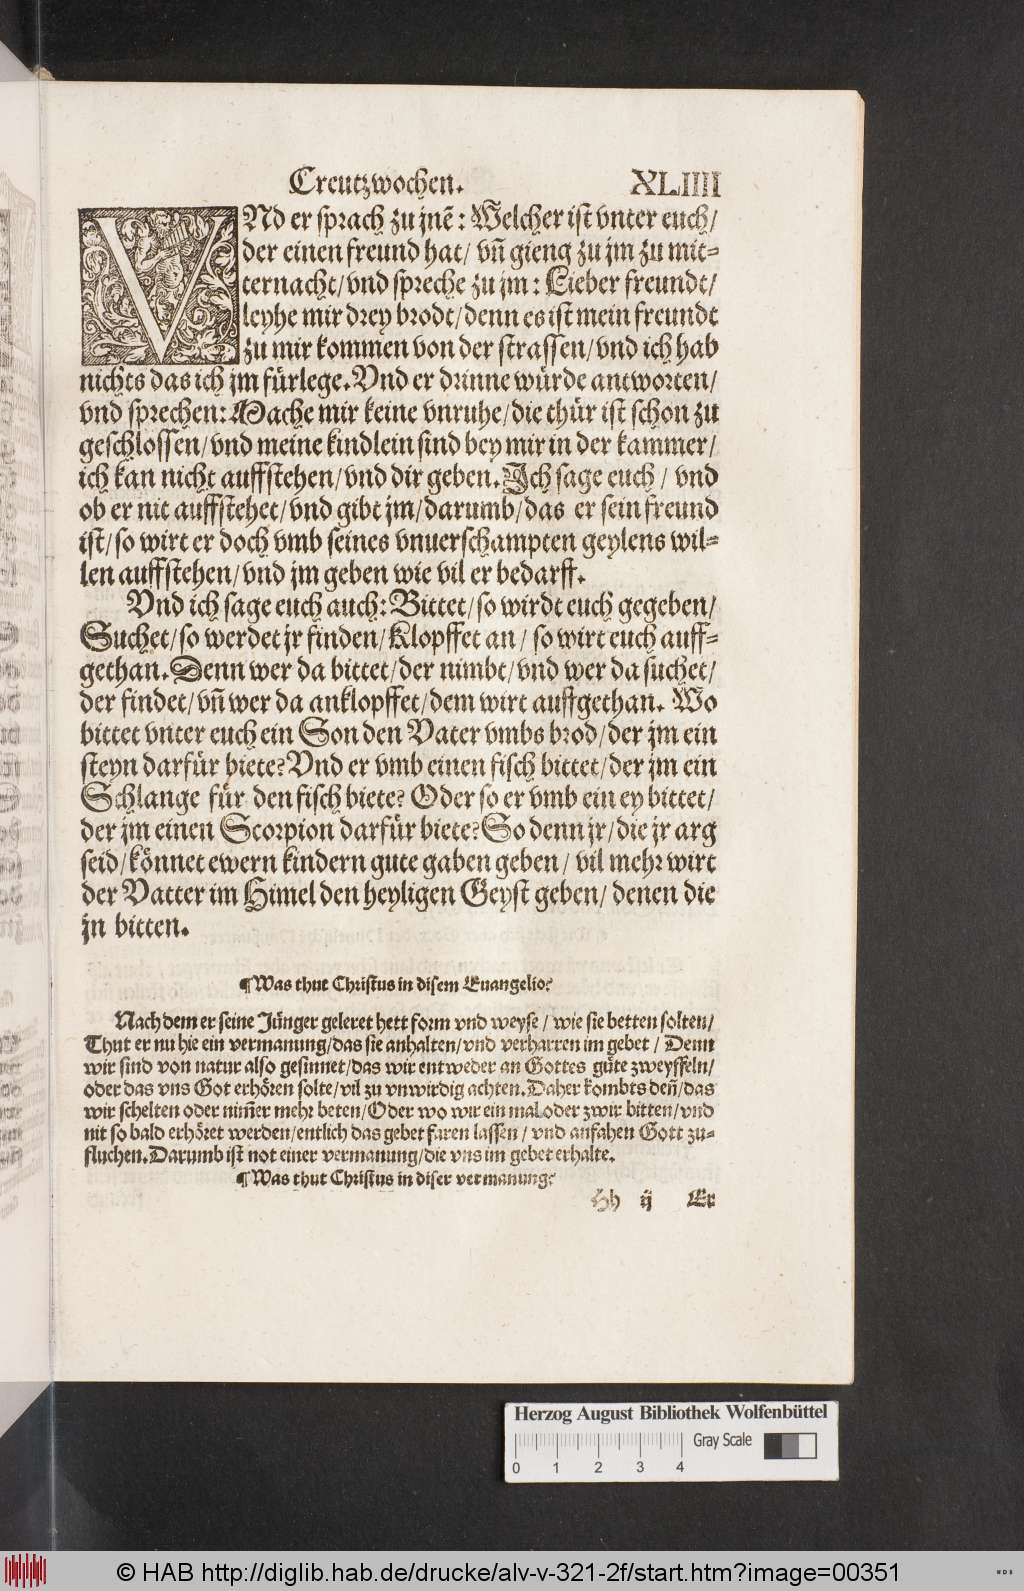 Creutzwochen. XLIIII
VNd er sprach zu jnẽ: Welcher ist vnter euch/
der einen freund hat/ vñ gieng zu jm zu mit⸗
ternacht/vnd spreche zu jm: Lieber freundt/
leyhe mir drey brodt/denn es ist mein freundt
zu mir kommen von der strassen/vnd ich hab
nichts das ich jm fürlege. Vnd er drinne würde antworten/
vnd sprechen: Mache mir keine vnruhe/die thür ist schon zu
geschlossen/vnd meine kindlein sind bey mir in der kammer/
ich kan nicht auffstehen/vnd dir geben. Ich sage euch / vnd
ob er nit auffstehet/vnd gibt jm/darumb/das er sein freund
ist/so wirt er doch vmb seines vnuerschampten geylens wil⸗
len auffstehen/vnd jm geben wie vil er bedarff.
Vnd ich sage euch auch: Bittet/so wirdt euch gegeben/
Suchet/so werdet jr finden/Klopffet an / so wirt euch auff⸗
gethan. Denn wer da bittet/der nimbt/vnd wer da suchet/
der findet/vñ wer da anklopffet/dem wirt auffgethan. Wo
bittet vnter euch ein Son den Vater vmbs brod/der jm ein
steyn darfür biete? Vnd er vmb einen fisch bittet/der jm ein
Schlange für den fisch biete? Oder so er vmb ein ey bittet/
der jm einen Scorpion darfür biete? So denn jr/die jr arg
seid/könnet ewern kindern gute gaben geben / vil mehr wirt
der Vatter im Himel den heyligen Geyst geben/ denen die
jn bitten.
¶ Was thut Christus in disem Euangelio?
Nach dem er seine Jünger geleret hett form vnd weyse / wie sie betten solten/
Thut er nu hie ein vermanung/das sie anhalten/vnd verharren im gebet / Denn
wir sind von natur also gesinnet/das wir entweder an Gottes güte zweyffeln/
oder das vns Got erhören solte/vil zu vnwirdig achten. Daher kombts deñ/das
wir schelten oder nim̃er mehr beten/Oder wo wir ein mal oder zwir bitten/vnd
nit so bald erhöret werden/entlich das gebet faren lassen / vnd anfahen Gott zu⸗
fluchen. Darumb ist not einer vermanung/die vns im gebet erhalte.
¶ Was thut Christus in diser vermanung?
Hh ij Er
Herzog August Bibliothek Wolfenbüttel
0 1 2 3 4 Gray Scale
© HAB http://diglib.hab.de/drucke/alv-v-321-2f/start.htm?image=00351